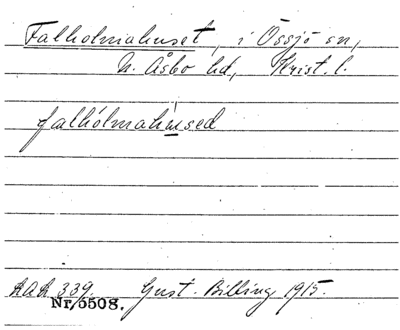 Falholmahuset, i Össjö sn,
N. Åsbo hd, Krist. l.
falhólmahùsed
RAÄ 339. Gust. Billing 1915.
Nr, 5508.